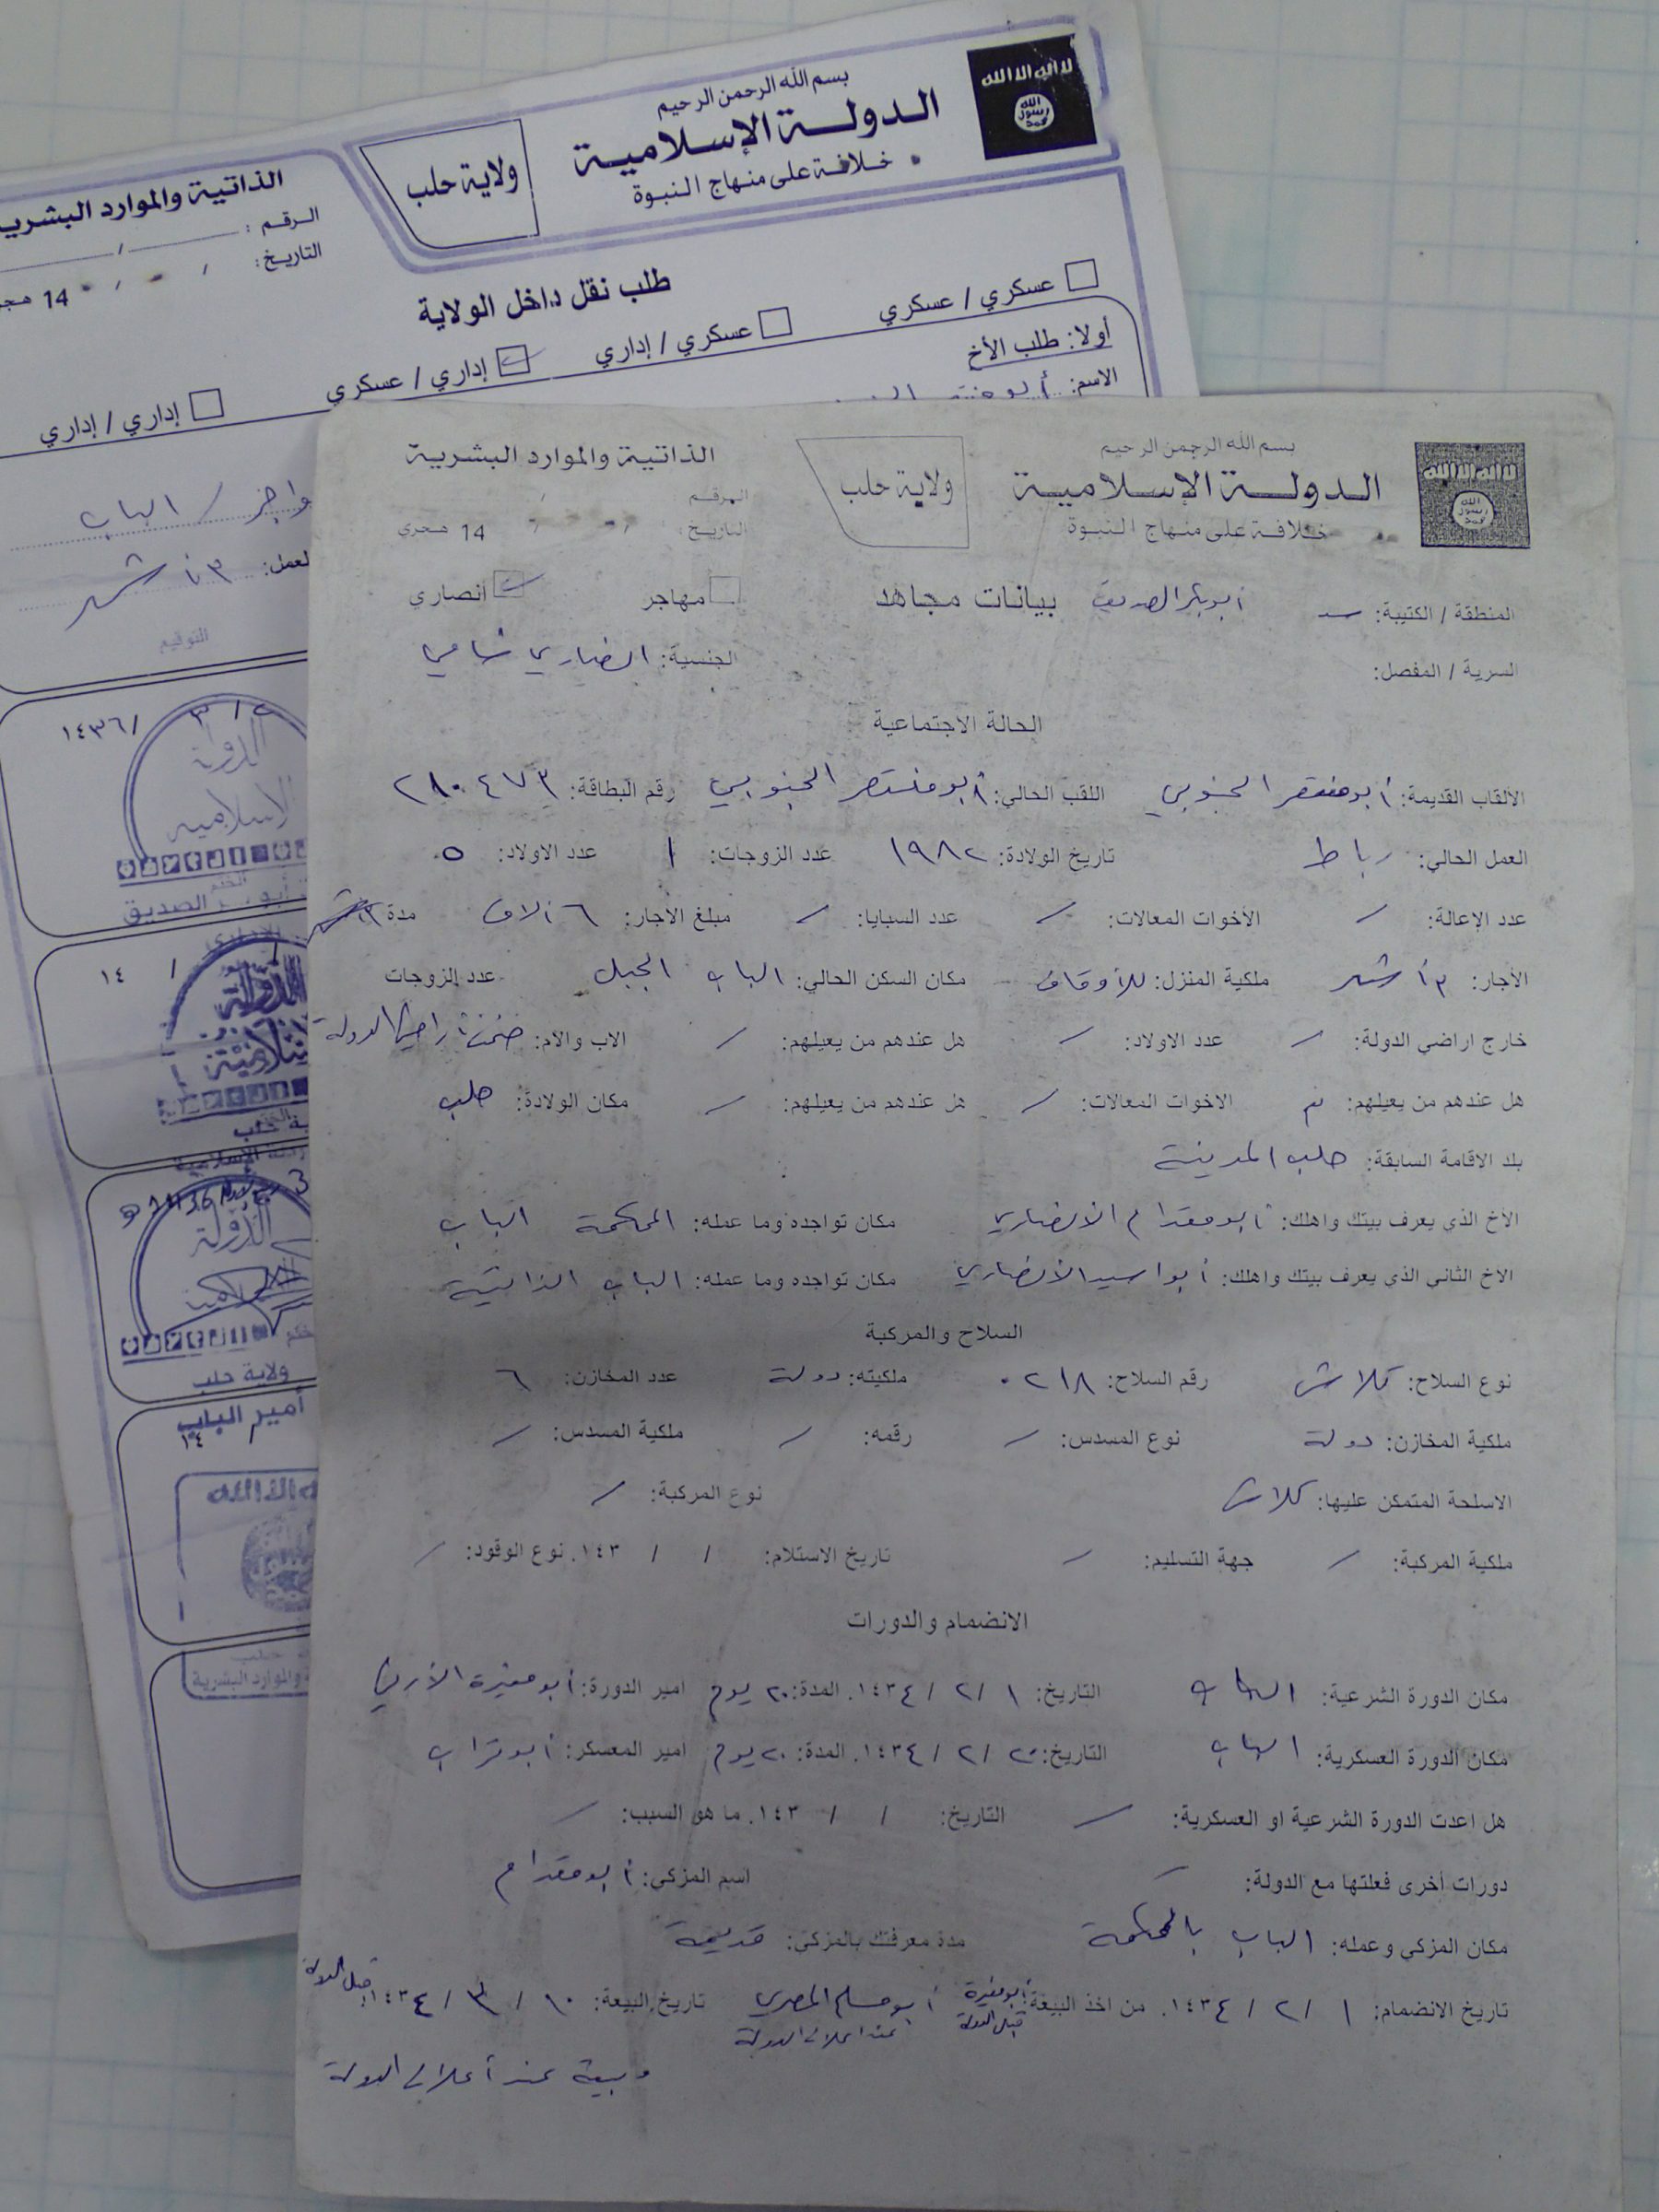 بسم الله الرحمن الرحيم
الدولة الإسلامية
خلافة على منهاج النبوة
ولاية حلب
الذاتية والموارد البشرية
الرقم: /
التاريخ: / / 14 هجر
طلب نقل داخل الولاية
عسكري / عسكري
عسكري / إداري
إداري / عسكري
إداري / إداري
أولا: طلب الأخ
الاسم:
الباب
العمل: ٣ أشهر
التوقيع
١٤٣٦/ ٣ /
الدولة
الاسلامية
الختم
الصديق
١٤ /
الدولة
الختم
حلب
الدولة
ولاية حلب
أمير الباب
١٤ /
والموارد البشرية
لا اله الا الله
الله رسول محمد
بسم الله الرحمن الرحيم
الدولة الإسلامية
خلافة على منهاج النبوة
ولاية حلب
الذاتية والموارد البشرية
الرقم: /
التاريخ: / / 14 هجري
بيانات مجاهد مهاجر أنصاري
المنطقة / الكتيبة: أبو بكر الصديق
السرية / المفصل: الجنسية: انصاري شامي
الحالة الاجتماعية
الألقاب القديمة: أبو منتصر الجنوبي اللقب الحالي: أبو منتصر الجنوبي رقم البطاقة: ٢٨٠٤٧٣
العمل الحالي: رباط تاريخ الولادة: ١٩٨٢ عدد الزوجات: ١ عدد الاولاد: ٥
عدد الإعالة: / الأخوات المعالات: / عدد السبايا: / مبلغ الأجار: ٦ آلاف مدة
الأجار: ٣ أشهر ملكية المنزل: للأوقاف مكان السكن الحالي: الباب الجبل عدد الزوجات
خارج اراضي الدولة: / عدد الاولاد: / هل عندهم من يعيلهم: / الاب والام: ضمن أراضي الدولة
هل عندهم من يعيلهم: الاخوات المعالات: / هل عندهم من يعيلهم: / مكان الولادة: حلب
بلد الاقامة السابقة: حلب المدينة
الأخ الذي يعرف بيتك واهلك: أبو مقدام الأنصاري مكان تواجده وما عمله: المحكمة الباب
الاخ الثاني الذي يعرف بيتك واهلك: أبو اسيد الأنصاري مكان تواجده وما عمله: الباب الذاتية
السلاح والمركبة
نوع السلاح: كلاش رقم السلاح: ٠٢١٨ ملكيته: دولة عدد المخازن: ٦
ملكية المخازن: دولة نوع المسدس: / رقمه: / ملكية المسدس: /
الاسلحة المتمكن عليها: كلاش نوع المركبة: /
ملكية المركبة: / جهة التسليم: / تاريخ الاستلام: / / ١٤٣. نوع الوقود: /
الانضمام والدورات
مكان الدورة الشرعية: الباب التاريخ: ١ / ٢ / ١٤٣٤. المدة: ٢٠ يوم امير الدورة: أبو مغيرة الأردني
مكان الدورة العسكرية: الباب التاريخ: ٢٠ / ٢ / ١٤٣٤. المدة: ٢٠ يوم امير المعسكر: أبو تراب
هل اعدت الدورة الشرعية او العسكرية: / التاريخ: / / ١٤٣. ما هو السبب: /
دورات أخرى فعلتها مع الدولة: / اسم المزكي: أبو مقدام
مكان المزكي وعمله: الباب بالمحكمة مدة معرفتك بالمزكي: قديمة
تاريخ الانضمام: ١ / ٢ / ١٤٣٤. من اخذ البيعة: أبو مغيرة قبل الدولة أبو مسلم المصري عند اعلان الدولة تاريخ البيعة: ١٠ / ٣ / ١٤٣٤. قبل الدولة
وبيعة عند أعلان الدولة